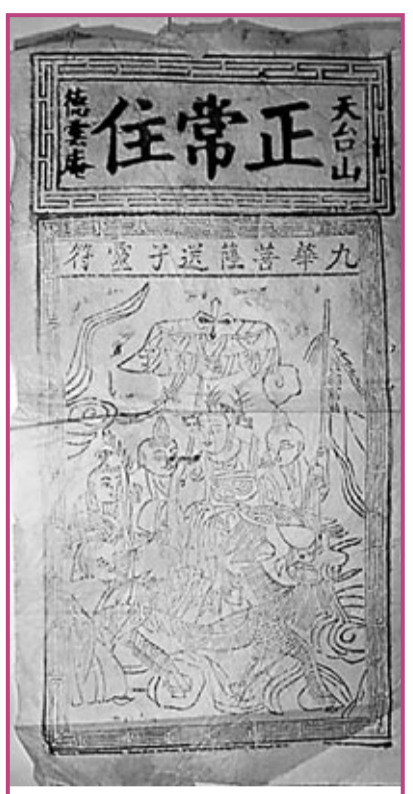 天台山
正常住
德雲庵
九華菩薩送子靈符